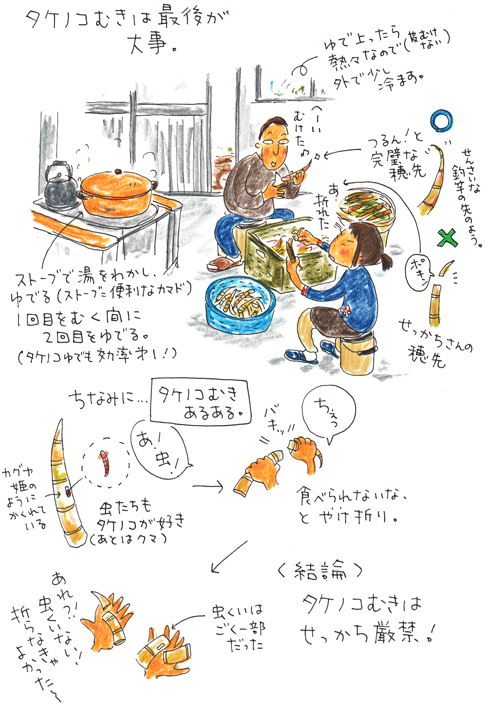 タケノコむきは最後が
大事。
ゆで上ったら
熱々なので(皮むけない)
外で少し
冷ます。
へーい
むけた♪
つるん!と
完璧な
穂先
せんさいな
釣竿の先のよう。
あ
折れた
ポキッ
せっかちさんの
穂先
ストーブで湯をわかし、
ゆでる(ストーブ=便利なカマド)
1回目をむく間に
2回目をゆでる。
(タケノコゆでも効率よし!)
ちなみに…
タケノコむき
あるある。
あ!
虫!
カグヤ
姫の
ように
かくれて
いる
虫たちも
タケノコが好き
(あとはクマ)
バキッ!!
ちぇっ
食べられないな、
とやけ折り。
あれっ!
虫くいない!
折らなきゃ
よかった〜
虫くいは
ごく一部
だった
〈結論〉
タケノコむきは
せっかち厳禁!